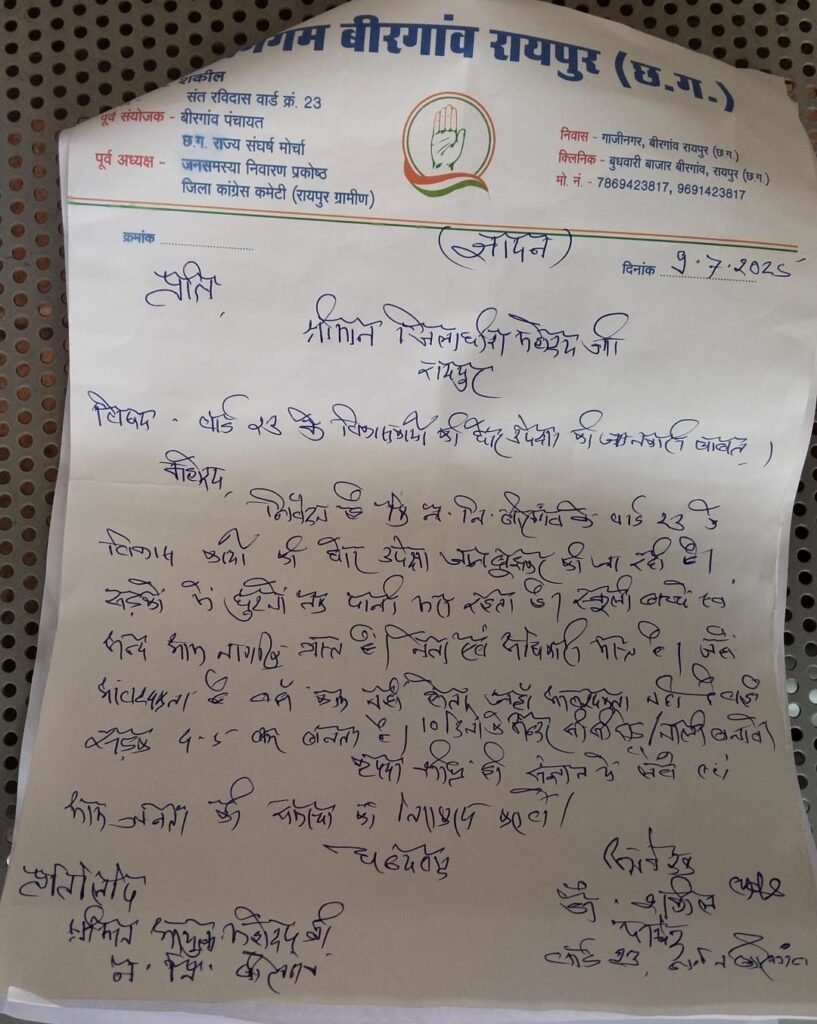 निगम बीरगांव रायपुर (छ.ग.)
शकील
संत रविदास वार्ड क्रं. 23
पूर्व संयोजक - बीरगांव पंचायत
छ.ग. राज्य संघर्ष मोर्चा
पूर्व अध्यक्ष - जनसमस्या निवारण प्रकोष्ठ
जिला कांग्रेस कमेटी (रायपुर ग्रामीण)
निवास - गाजीनगर, बीरगांव रायपुर (छ.ग.)
क्लिनिक - बुधवारी बाजार बीरगांव, रायपुर (छ.ग.)
मो. नं. - 7869423817, 9691423817
क्रमांक
दिनांक 9.7.2025
प्रति,
श्रीमान जिलाधीश महोदय जी
रायपुर
विषय - वार्ड 23 के विकासकार्यो की घोर उपेक्षा की जानकारी बाबत्
महोदय,
निवेदन है कि न. नि. बीरगांव के वार्ड 23 के
विकास कार्यो की घोर उपेक्षा जानबूझकर की जा रही है।
सड़कों में घुटनों तक पानी भरा रहता है। स्कूली बच्चे एवं
अन्य आम नागरिक त्रस्त है। नेता एवं अधिकारी मस्त है। जहां
आवश्यकता है वहाँ काम नही होता, जहाँ आवश्यकता नही है वही
सड़क 4-5 बार बनता है। 10 दिनों के अन्दर सी सी रोड/नाली बनावें
कृपया शीघ्र ही संज्ञान में लेवे एवं
आम जनता की समस्या का निराकरण करावें।
धन्यवाद
प्रतिलिपि
श्रीमान आयुक्त महोदय जी,
न. नि. बीरगांव
निवेदक
डॉ. शकील
पार्षद
वार्ड 23, न. नि. बीरगांव